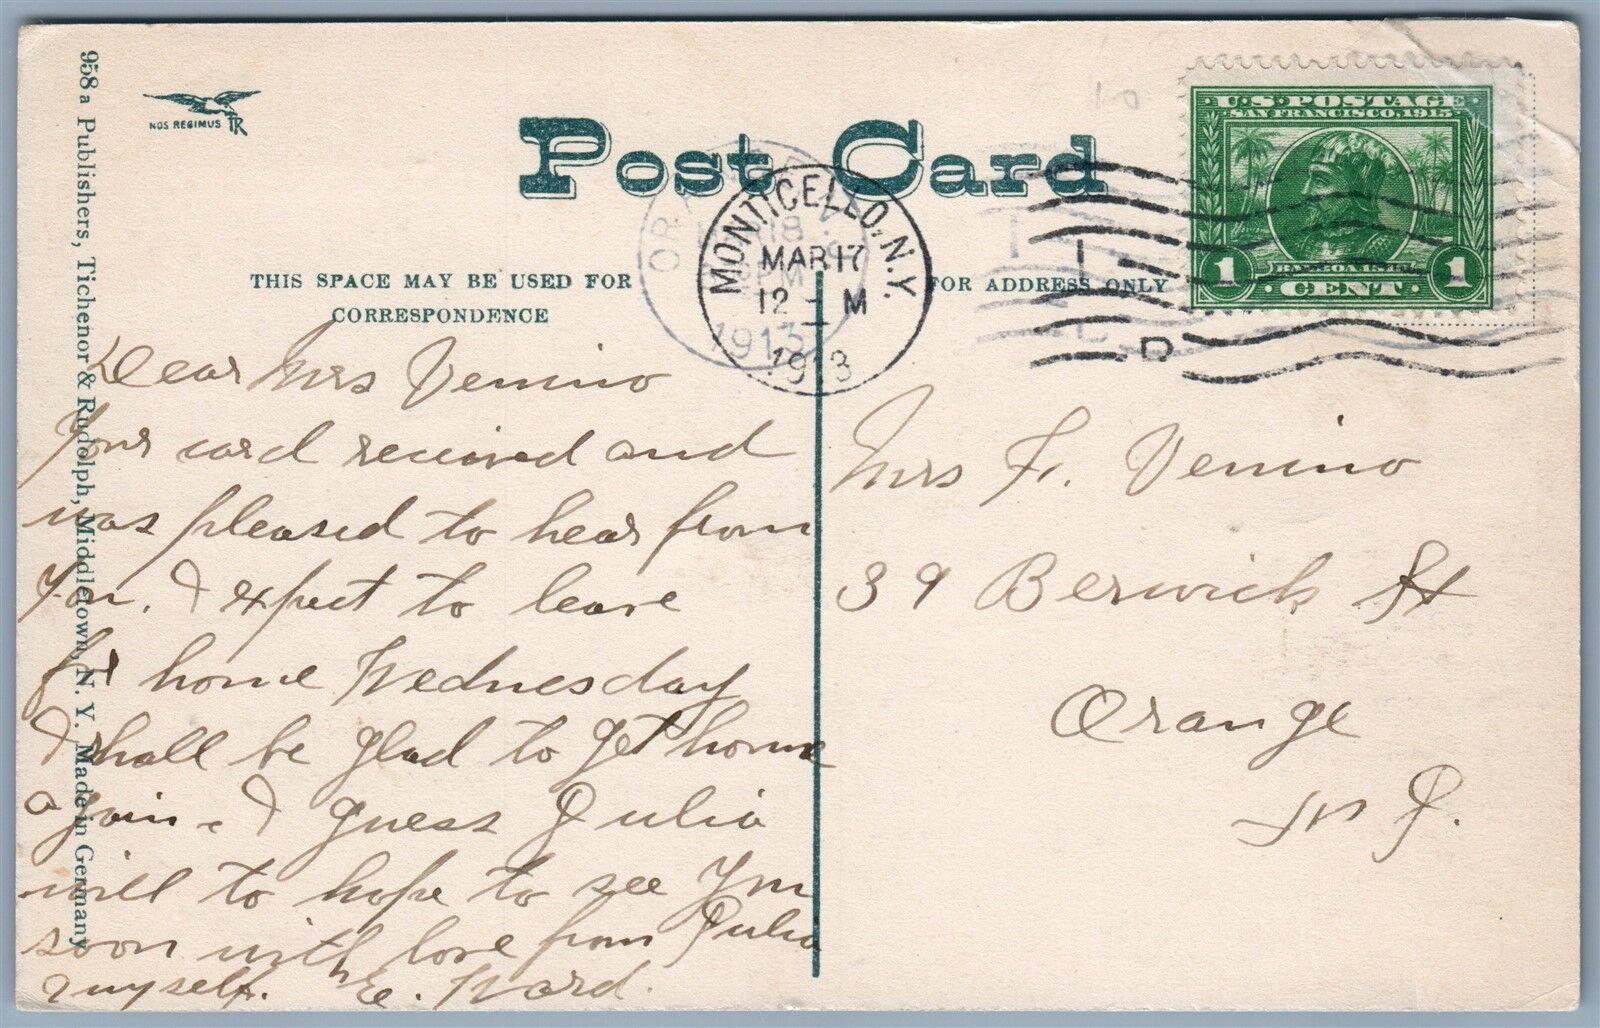 958 a Publishers, Tichenor & Rudolph, Middletown, N. Y. Made in Germany
NOS REGIMUS TR
Post Card
THIS SPACE MAY BE USED FOR
CORRESPONDENCE
FOR ADDRESS ONLY
MONTICELLO, N.Y.
MAR 17
12 - M
1913
18
1913
U.S. POSTAGE
SAN FRANCISCO, 1915
BALBOA 1513
1 CENT 1
Dear Mrs Venino
Your card received and
was pleased to hear from
You. I expect to leave
for home Wednesday
I shall be glad to get home
again. I guess Julia
will to hope to see You
soon with love from Julia
& myself. E. Ward.
Mrs F. Venino
39 Berwick St
Orange
N J.